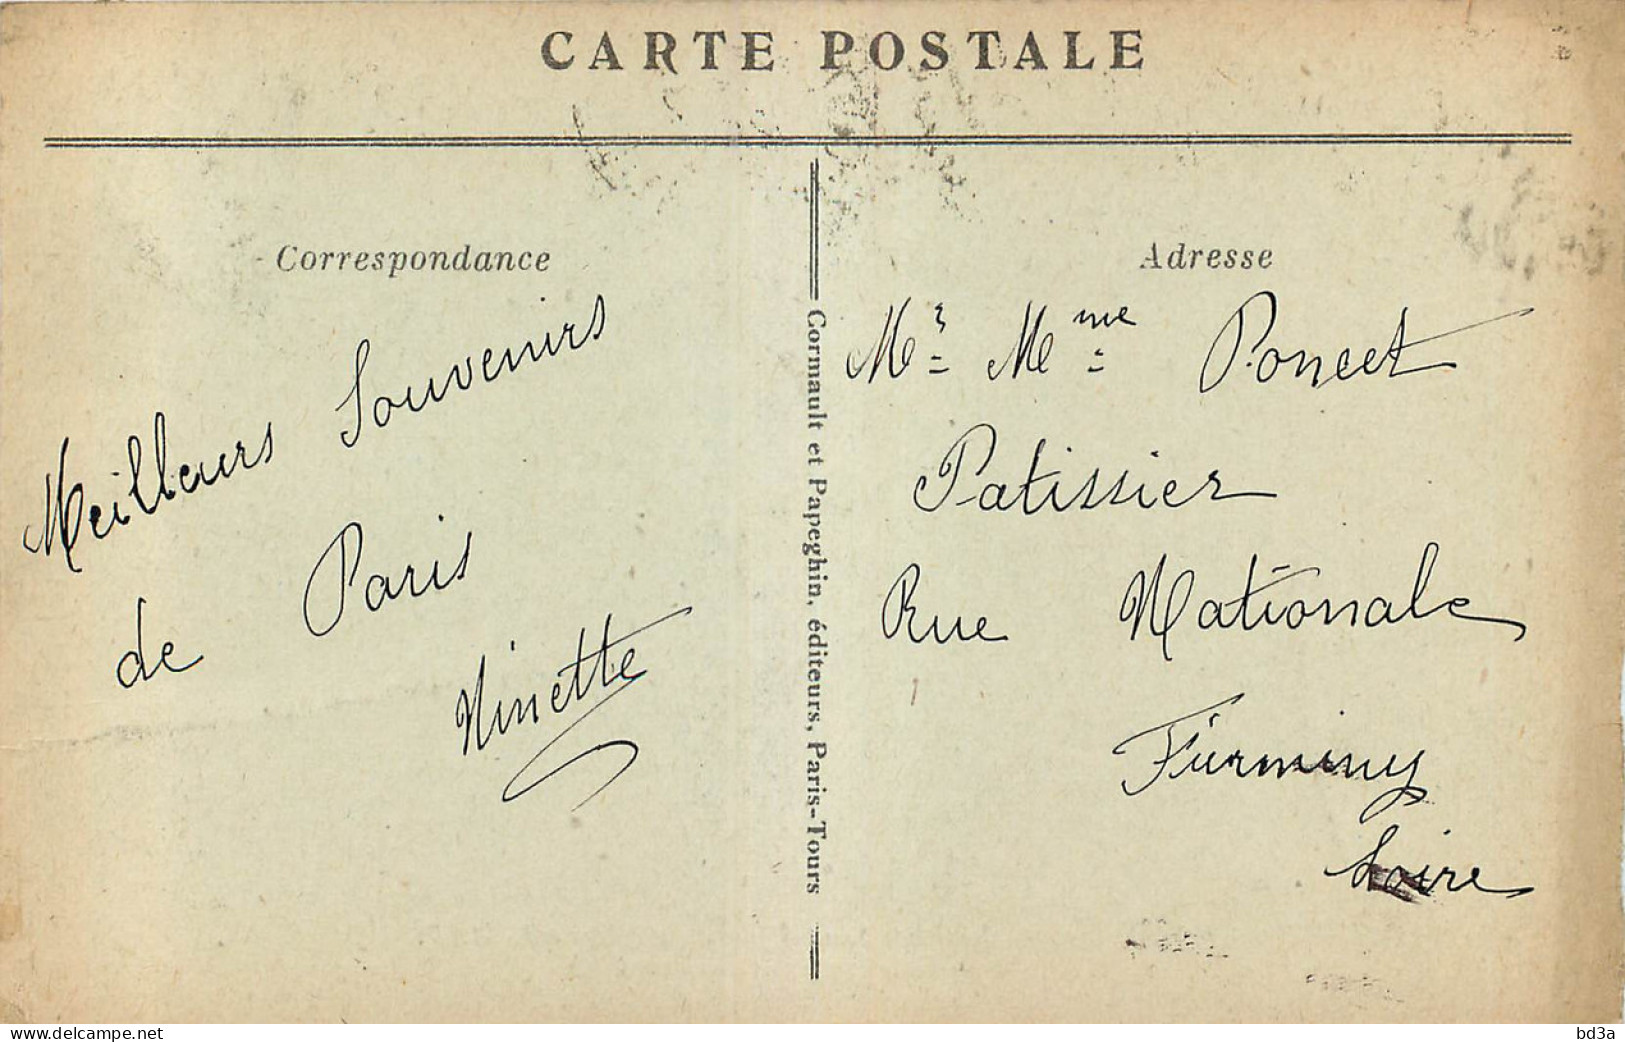 CARTE POSTALE
Correspondance
Meilleurs Souvenirs
de Paris
Ninette
Cormault et Papeghin, éditeurs, Paris-Tours
Adresse
Mr Mme Poncet
Patissier
Rue Nationale
Firminy
Loire
www.delcampe.net
bd3a